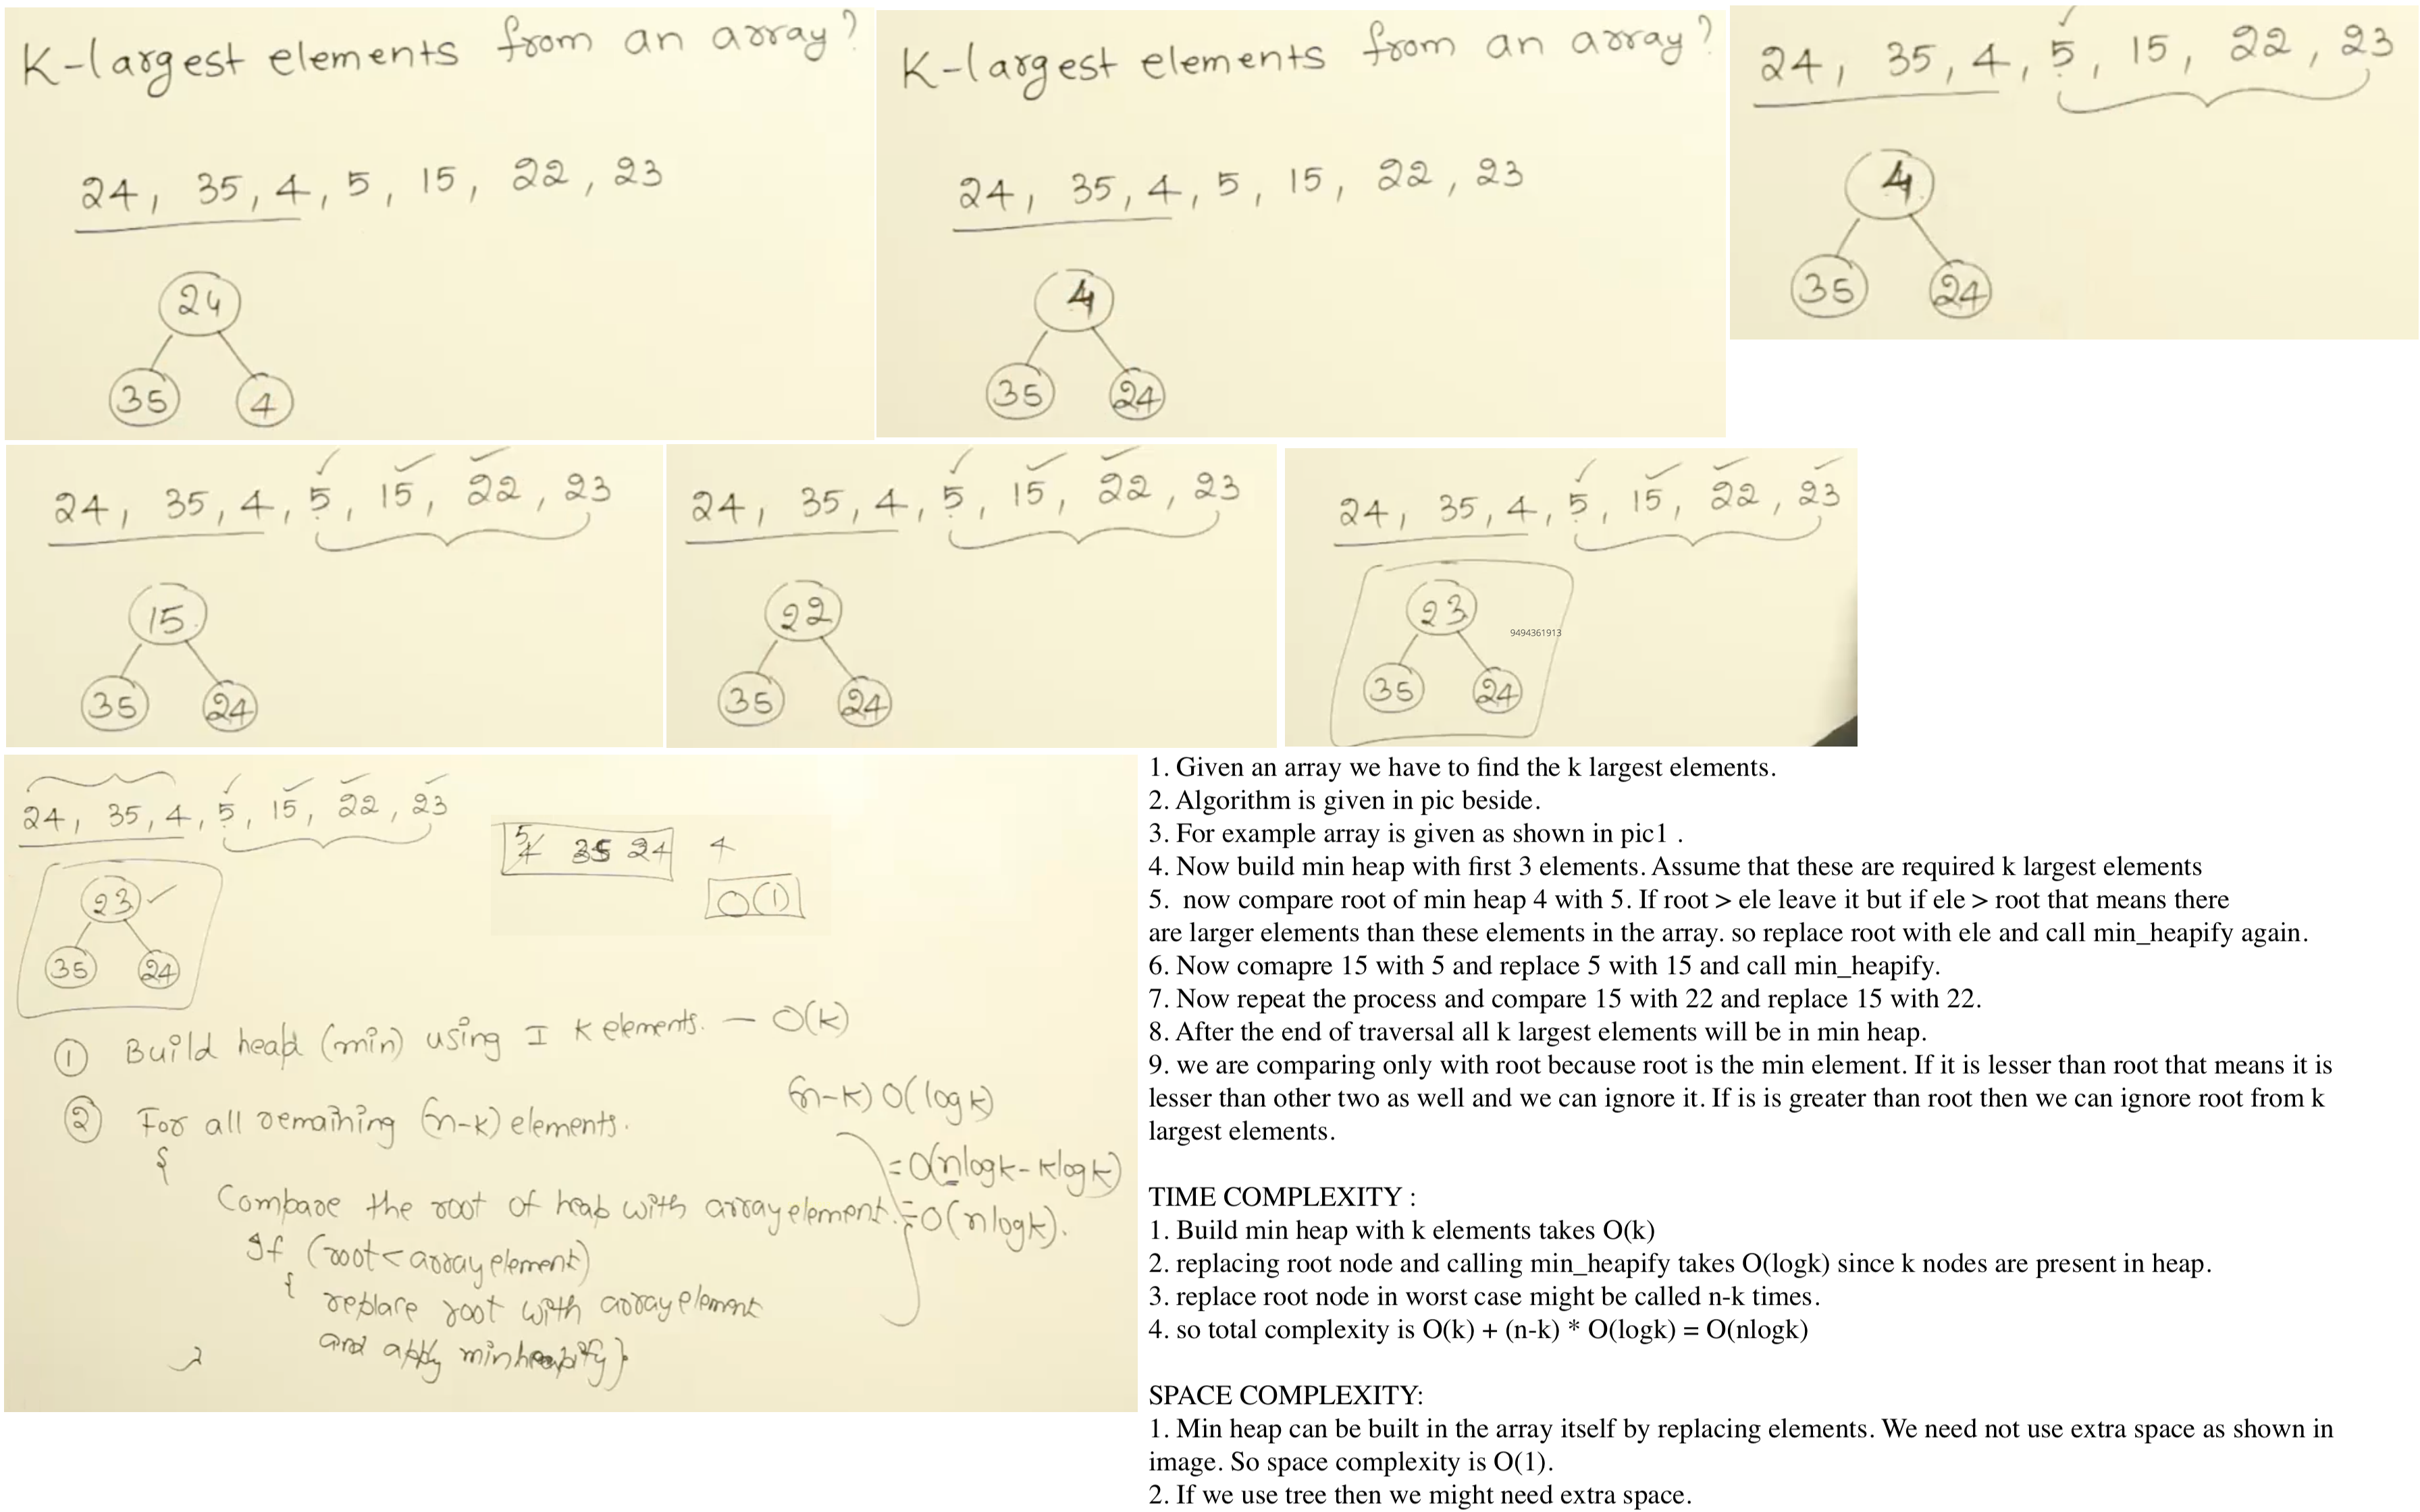 K-largest elements from an array?
24, 35, 4, 5, 15, 22, 23
24
35 4
K-largest elements from an array?
24, 35, 4, 5, 15, 22, 23
4
35 24
24, 35, 4, 5, 15, 22, 23
4
35 24
24, 35, 4, 5, 15, 22, 23
15
35 24
24, 35, 4, 5, 15, 22, 23
22
35 24
24, 35, 4, 5, 15, 22, 23
23
9494361913
35 24
24, 35, 4, 5, 15, 22, 23
5
4 35 24 4
O(1)
23
35 24
① Build heap (min) using I k elements. — O(k)
② For all remaining (n-k) elements.
{
Compare the root of heap with array element.
If (root < array element)
{ replace root with array element
and apply minheapify}
}
(n-k) O(log k)
= O(nlogk - klogk)
= O(nlogk).
1. Given an array we have to find the k largest elements.
2. Algorithm is given in pic beside.
3. For example array is given as shown in pic1 .
4. Now build min heap with first 3 elements. Assume that these are required k largest elements
5.  now compare root of min heap 4 with 5. If root > ele leave it but if ele > root that means there
are larger elements than these elements in the array. so replace root with ele and call min_heapify again.
6. Now comapre 15 with 5 and replace 5 with 15 and call min_heapify.
7. Now repeat the process and compare 15 with 22 and replace 15 with 22.
8. After the end of traversal all k largest elements will be in min heap.
9. we are comparing only with root because root is the min element. If it is lesser than root that means it is
lesser than other two as well and we can ignore it. If is is greater than root then we can ignore root from k
largest elements.
TIME COMPLEXITY :
1. Build min heap with k elements takes O(k)
2. replacing root node and calling min_heapify takes O(logk) since k nodes are present in heap.
3. replace root node in worst case might be called n-k times.
4. so total complexity is O(k) + (n-k) * O(logk) = O(nlogk)
SPACE COMPLEXITY:
1. Min heap can be built in the array itself by replacing elements. We need not use extra space as shown in
image. So space complexity is O(1).
2. If we use tree then we might need extra space.